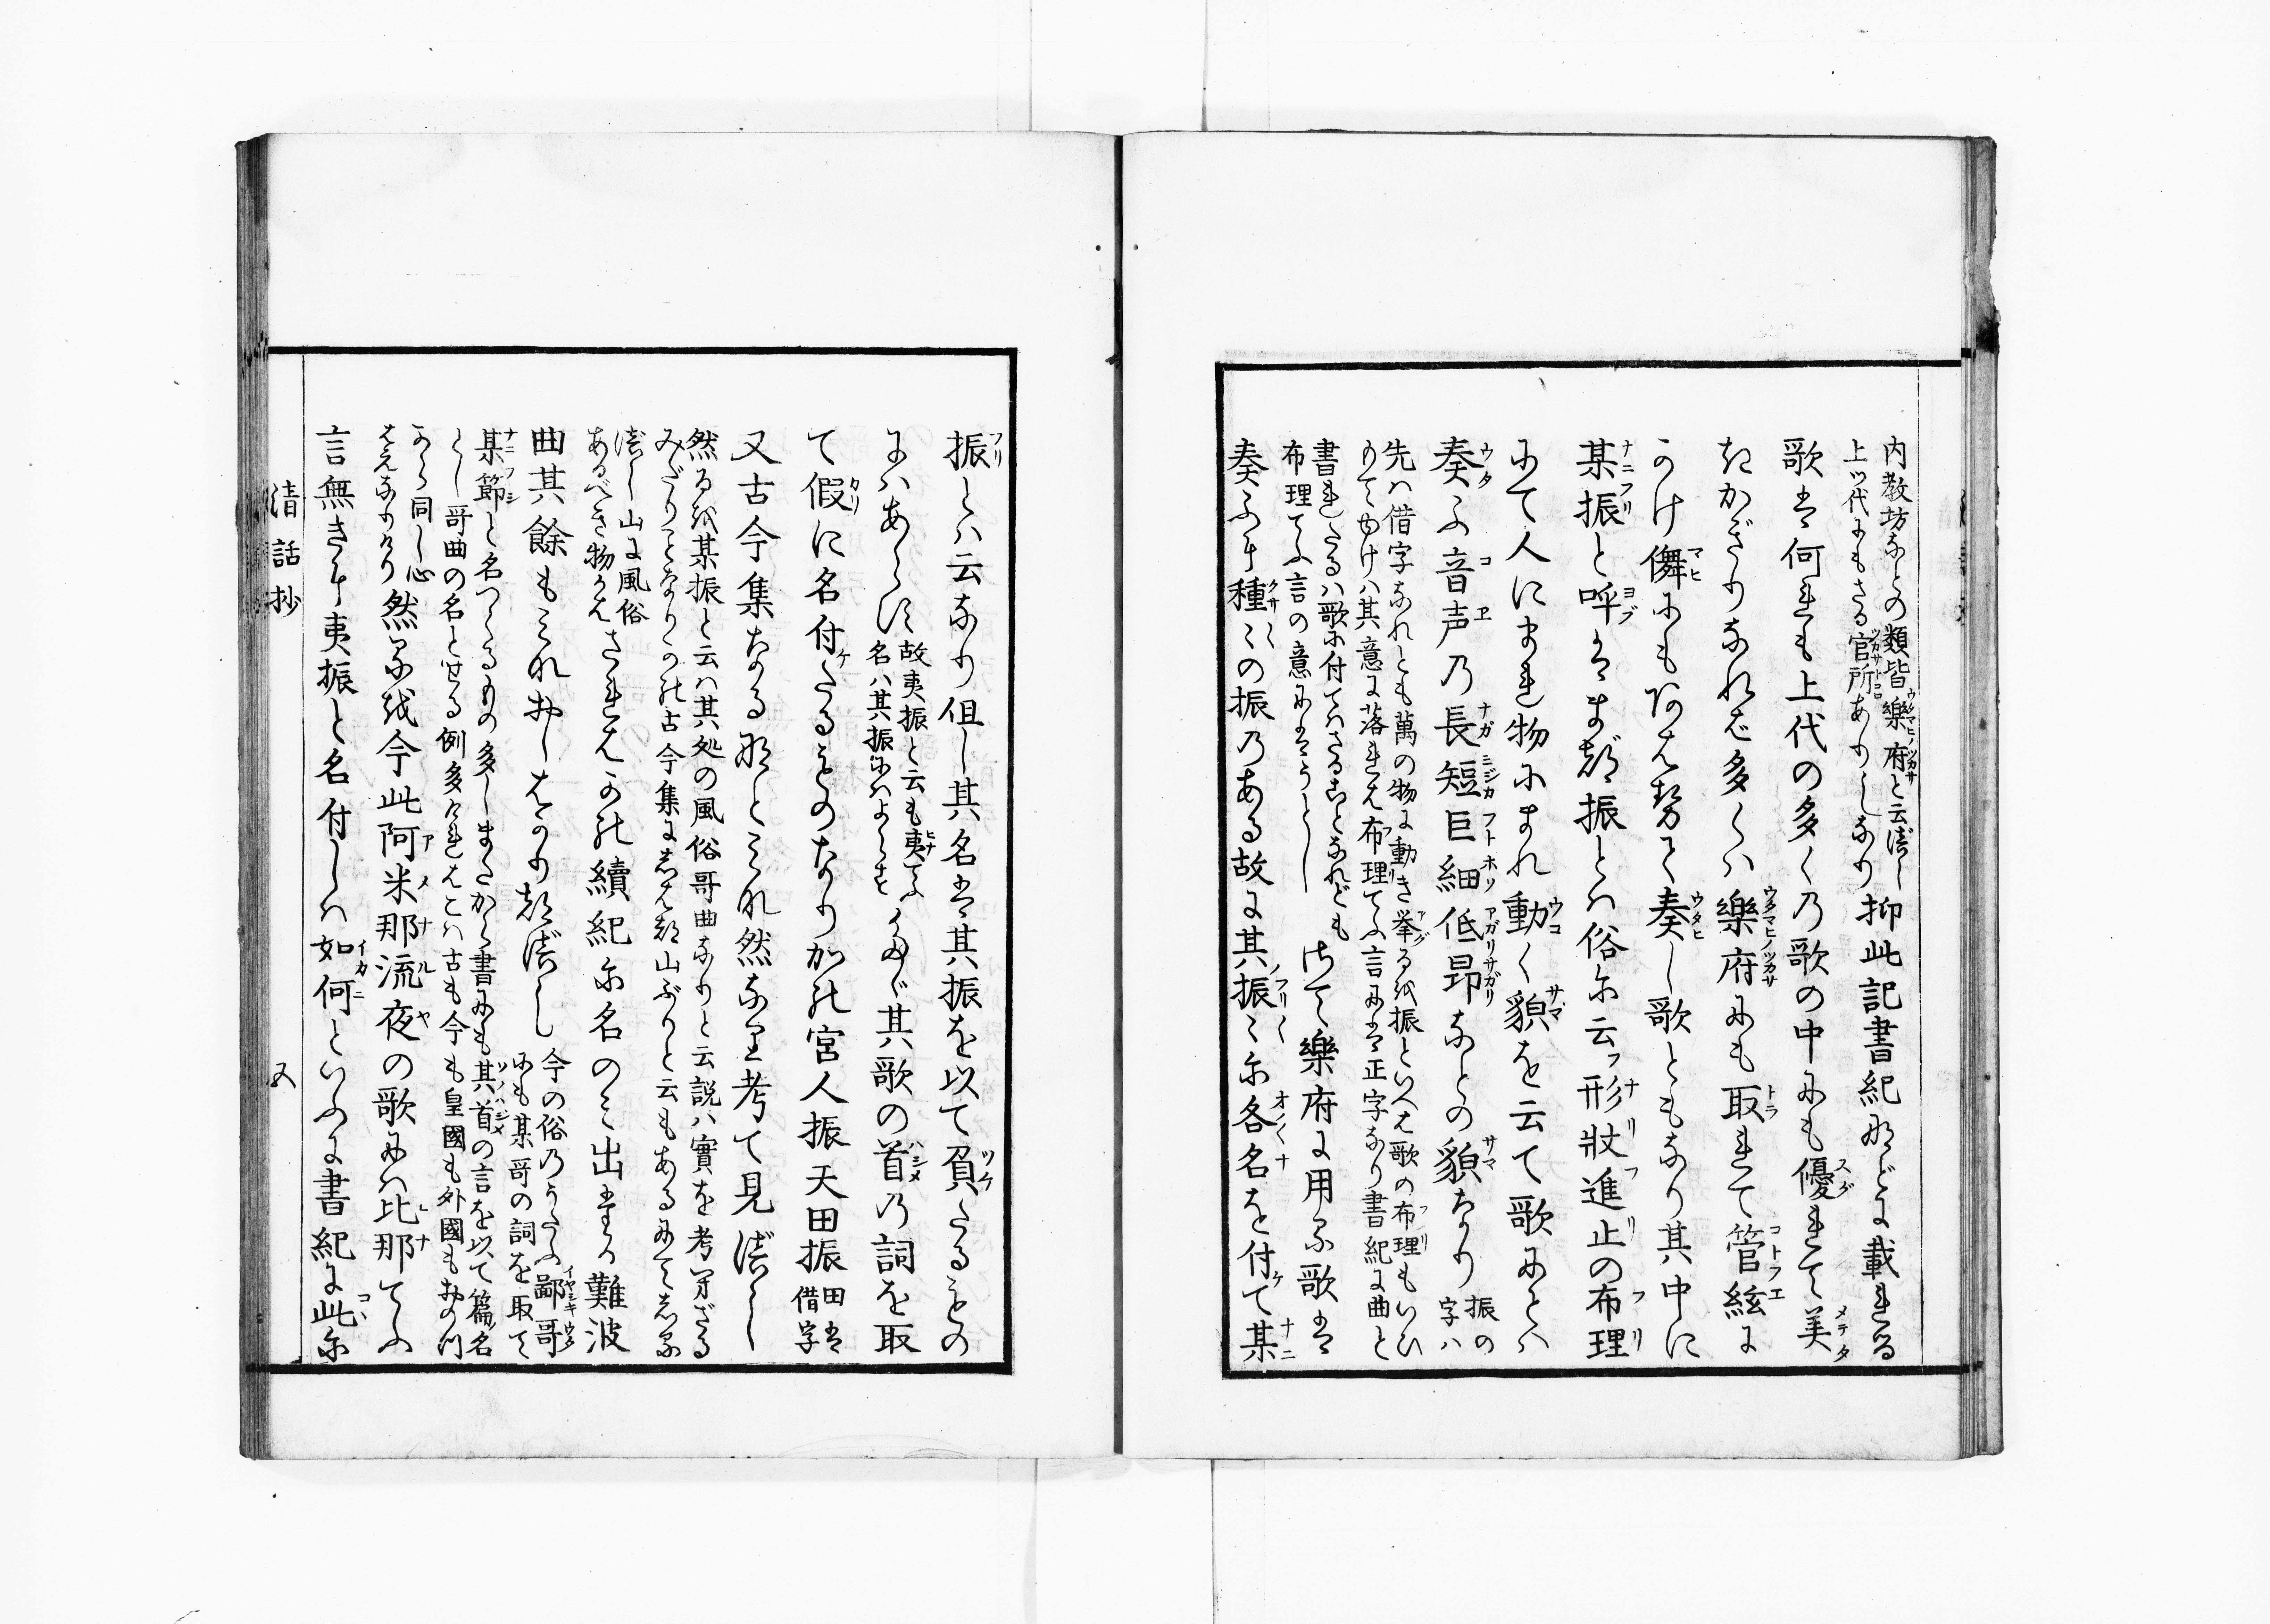 内教坊なとの類皆樂府と云べし
上ッ代にもさる官所ありしなり 抑此記書紀などに載れる
歌は何れも上代の多くの歌の中にも優れて美
たきかぎりなれば多くハ樂府にも取れて管絃に
かけ儛にもあはせて奏し歌ともなり其中に
某振と呼はまづ振とハ俗に云フ形狀進止の布理
にて人にまれ物にまれ動く貌を云て歌にとハ
奏ふ音声乃長短巨細低昂なとの貌なり 振の字ハ
先ハ借字なれとも萬の物に動き挙るを振といへは歌の布理もいひ
もてゆけハ其意に落れは布理てふ言には正字なり書紀に曲と
書れたるハ歌に付てハさることなれども
布理てふ言の意にはうとし さて樂府に用る歌は
奏ふに種〻の振乃ある故に其振〻に各名を付て某
振とハ云なり但し其名は其振を以て負たるもの
にハあらず 故夷振と云も夷てふ名ハ其振にハよらす たゞ其歌の首乃詞を取
て假に名付たるものなり加の宮人振天田振 田は借字
又古今集なる何しこれ然なり考て見べし
然るを某振と云ハ其処の風俗哥曲なりと云説ハ實を考ざる
みだりことなりかの古今集にしはつ山ぶりと云もあるにてしる
べし山に風俗あるべき物かは されはかの續紀に名のミ出たる難波
曲其餘もこれおしはかり知べし 今の俗乃うたふ鄙哥
にも某哥の詞を取て
某節と名つくるもの多しまたから書にも其首の言を以て篇名
とし哥曲の名とせる例多けれはこハ古も今も皇國も外國もおのつ
から同し心
はえなりけり 然るを今此阿米那流夜の歌にハ比那てふ
言無きに夷振と名付しハ如何といふに書紀に此に
清話抄
五